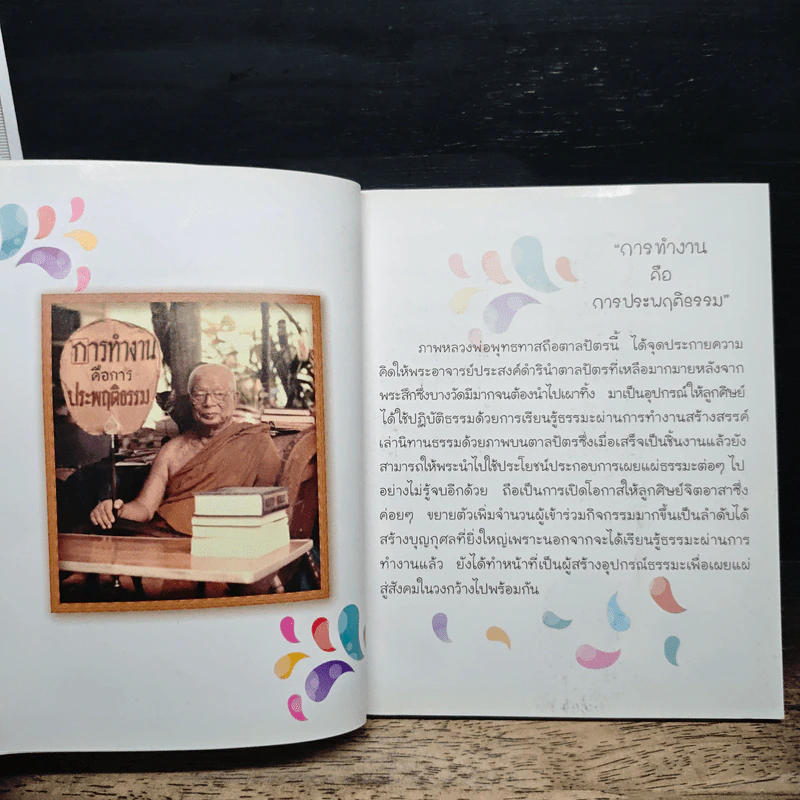 การทำงาน
คือการ
ประพฤติธรรม
"การทำงาน
คือ
การประพฤติธรรม"
ภาพหลวงพ่อพุทธทาสถือตาลปัตรนี้ ได้จุดประกายความ
คิดให้พระอาจารย์ประสงค์ดำรินำตาลปัตรที่เหลือมากมายหลังจาก
พระสึกซึ่งบางวัดมีมากจนต้องนำไปเผาทิ้ง มาเป็นอุปกรณ์ให้ลูกศิษย์
ได้ใช้ปฏิบัติธรรมด้วยการเรียนรู้ธรรมะผ่านการทำงานสร้างสรรค์
เล่านิทานธรรมด้วยภาพบนตาลปัตรซึ่งเมื่อเสร็จเป็นชิ้นงานแล้วยัง
สามารถให้พระนำไปใช้ประโยชน์ประกอบการเผยแผ่ธรรมะต่อๆ ไป
อย่างไม่รู้จบอีกด้วย ถือเป็นการเปิดโอกาสให้ลูกศิษย์จิตอาสาซึ่ง
ค่อยๆ ขยายตัวเพิ่มจำนวนผู้เข้าร่วมกิจกรรมมากขึ้นเป็นลำดับได้
สร้างบุญกุศลที่ยิ่งใหญ่เพราะนอกจากจะได้เรียนรู้ธรรมะผ่านการ
ทำงานแล้ว ยังได้ทำหน้าที่เป็นผู้สร้างอุปกรณ์ธรรมะเพื่อเผยแผ่
สู่สังคมในวงกว้างไปพร้อมกัน